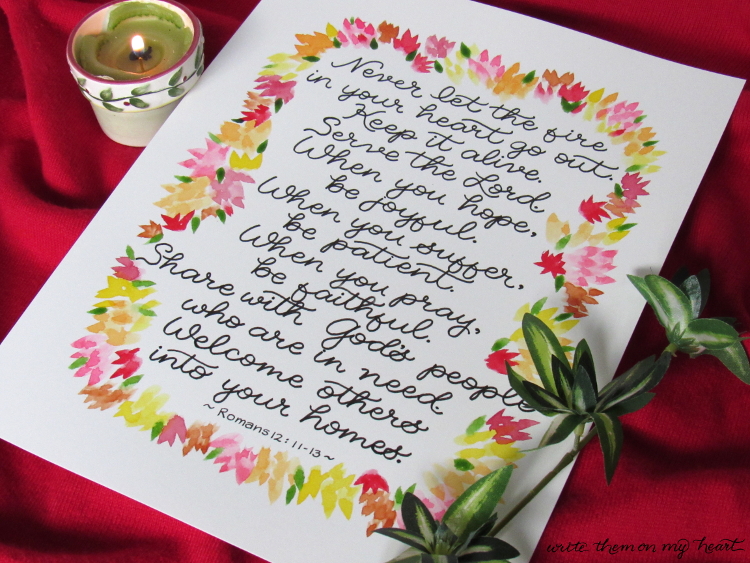 Never let the fire
in your heart go out.
Keep it alive.
Serve the Lord.
When you hope,
be joyful.
When you suffer,
be patient.
When you pray,
be faithful.
Share with God's people
who are in need.
Welcome others
into your homes.
~ Romans 12:11-13 ~
write them on my heart